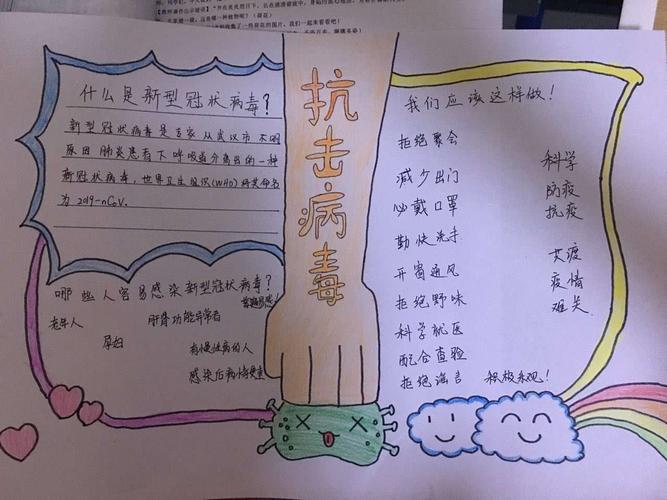 什么是新型冠状病毒?
新型冠状病毒是专家从武汉市不明
原因肺炎患者下呼吸道分离出的一种
新冠状病毒，世界卫生组织(WHO)将其命名
为2019-nCoV.
哪些人容易感染新型冠状病毒?
普遍易感!
老年人
肝肾功能异常者
孕妇
有慢性病的人
感染后病情更重
抗击病毒
我们应该这样做!
拒绝聚会
减少出门
必戴口罩
勤快洗手
开窗通风
拒绝野味
科学就医
配合查验
拒绝谣言
积极乐观!
科学
防疫
抗疫
共渡
疫情
难关